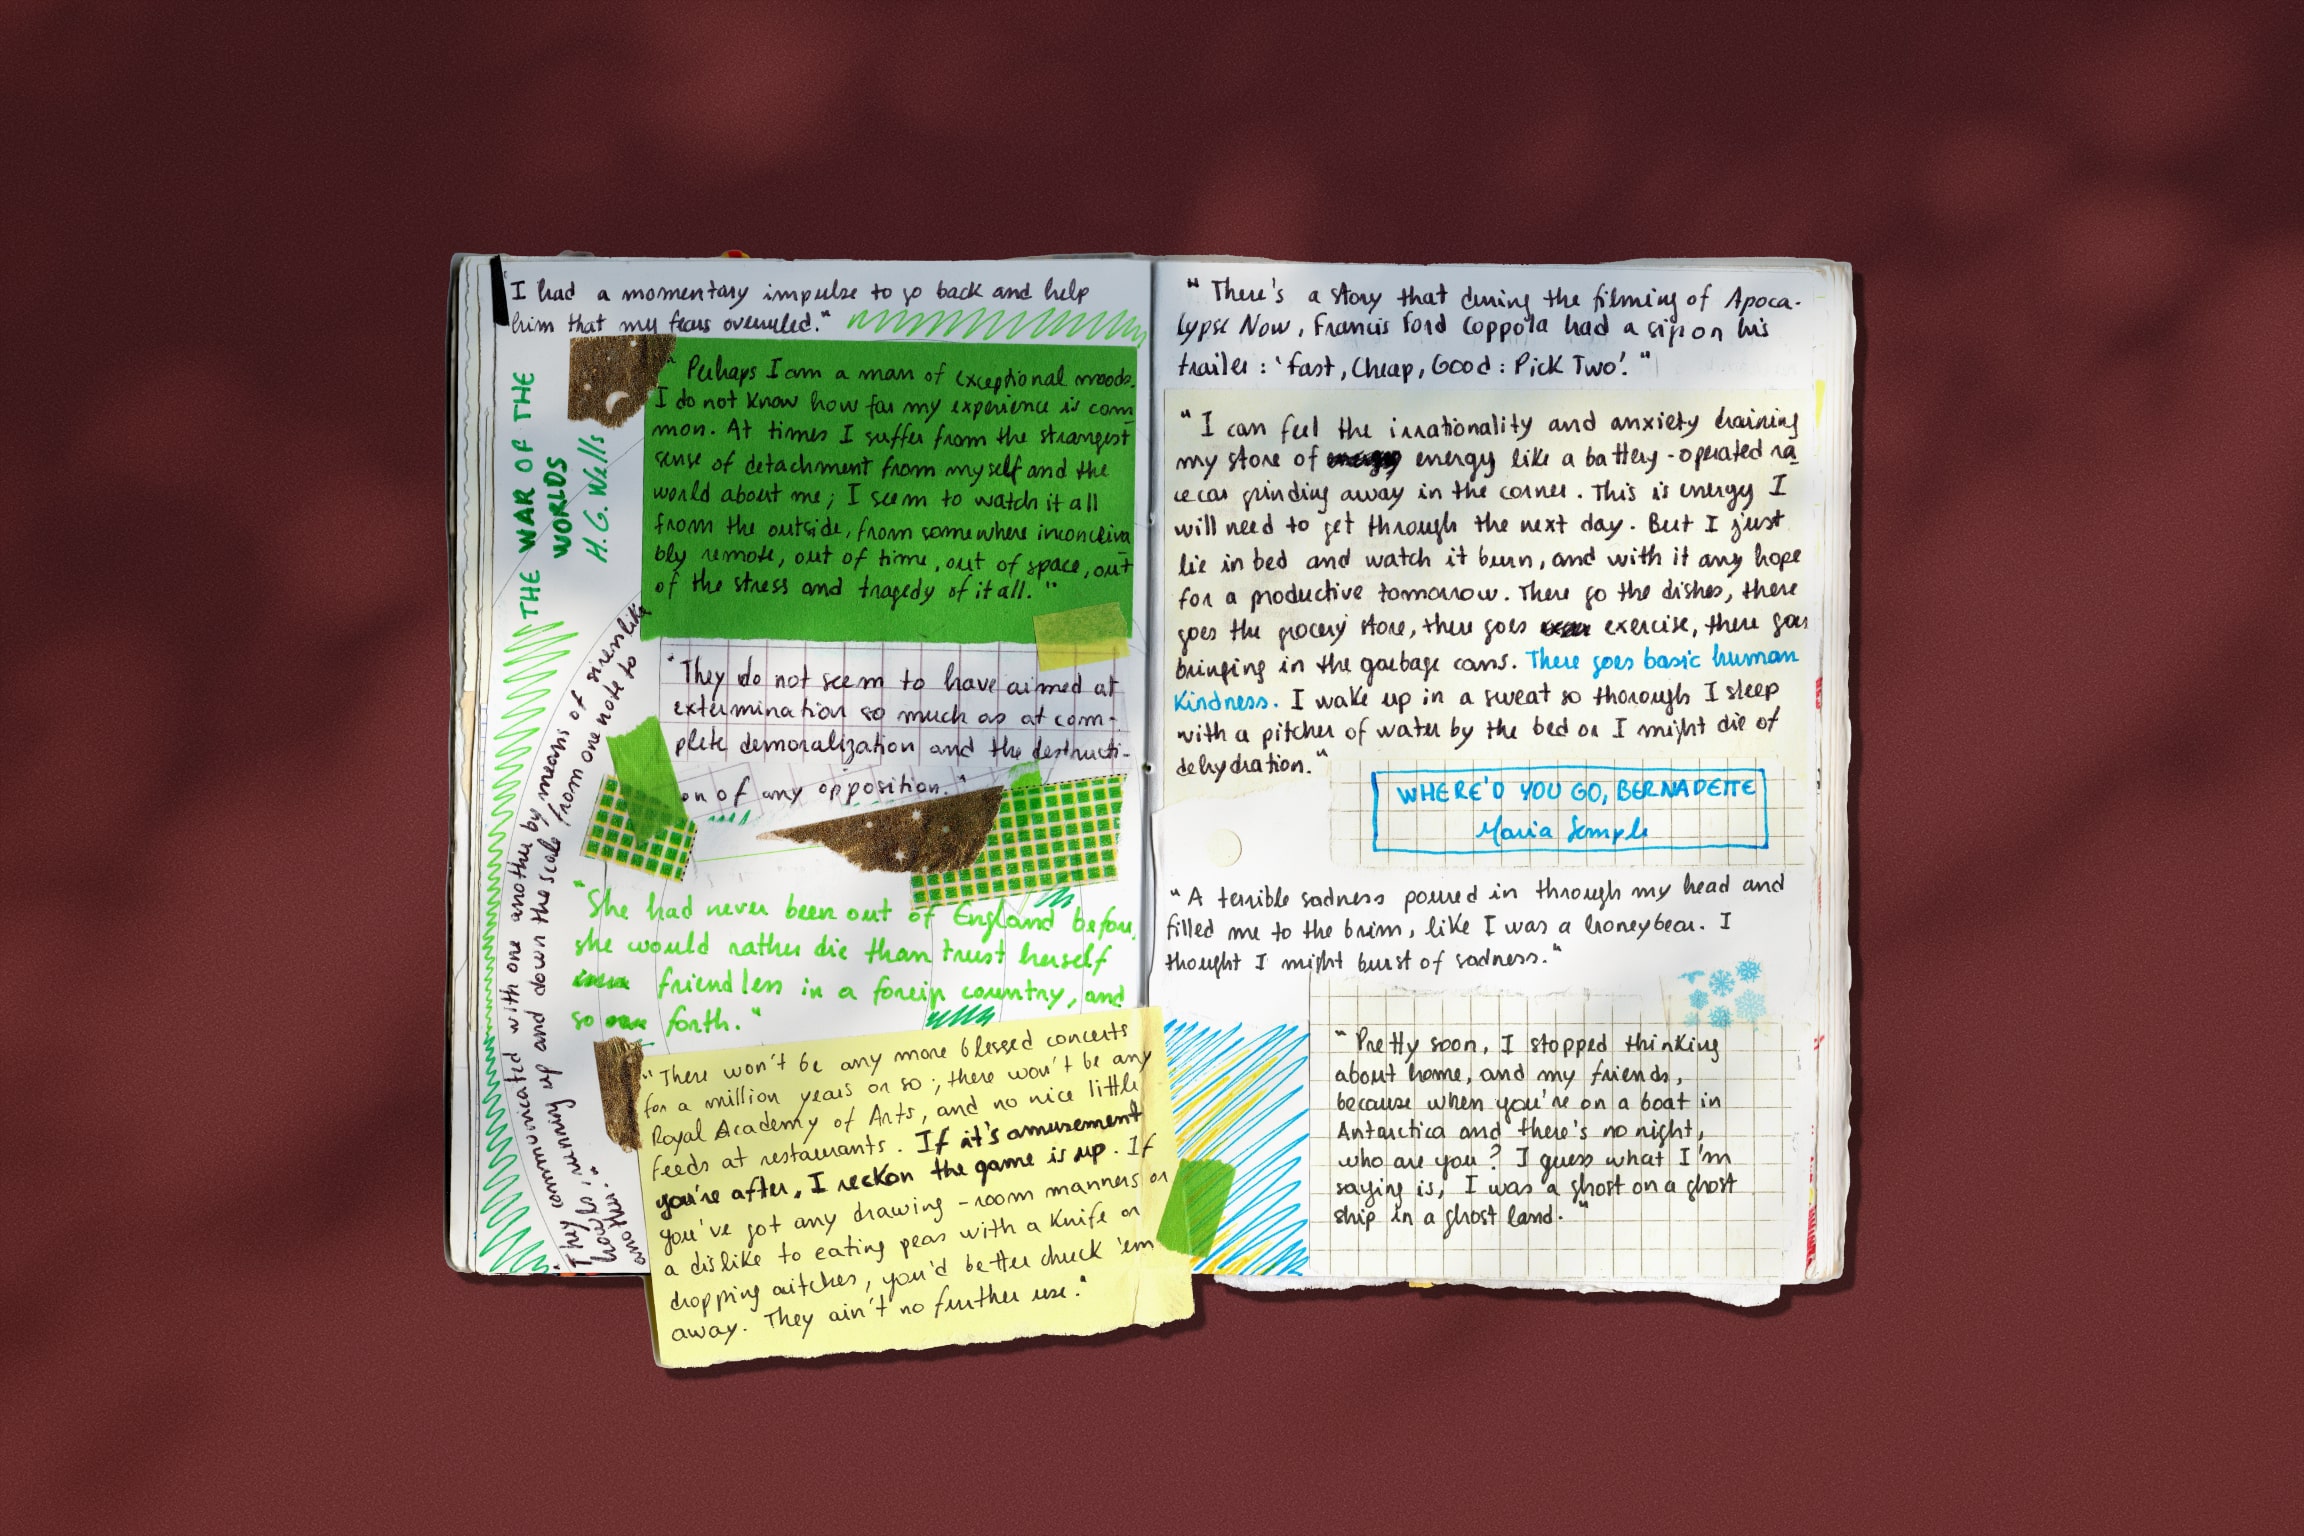 "I had a momentary impulse to go back and help
him that my fears overruled."
THE WAR OF THE
WORLDS
H.G. Wells
"Perhaps I am a man of exceptional moods.
I do not know how far my experience is com
mon. At times I suffer from the strangest
sense of detachment from myself and the
world about me; I seem to watch it all
from the outside, from somewhere inconceiva
bly remote, out of time, out of space, out
of the stress and tragedy of it all."
"They communicated with one another by means of sirenslike
howls, running up and down the scale from one note to
another."
"They do not seem to have aimed at
extermination so much as at com-
plete demoralization and the destructi-
on of any opposition."
"She had never been out of England before,
she would rather die than trust herself
friendless in a foreign country, and
so forth."
"There won't be any more blessed concerts
for a million years or so; there won't be any
Royal Academy of Arts, and no nice little
feeds at restaurants. If it's amusement
you're after, I reckon the game is up. If
you've got any drawing-room manners or
a dislike to eating peas with a knife or
dropping aitches, you'd better chuck 'em
away. They ain't no further use."
"There's a story that during the filming of Apoca-
lypse Now, Francis Ford Coppola had a sign on his
trailer: 'Fast, Cheap, Good: Pick Two'."
"I can feel the irrationality and anxiety draining
my store of energy like a battery-operated ra
cecar grinding away in the corner. This is energy I
will need to get through the next day. But I just
lie in bed and watch it burn, and with it any hope
for a productive tomorrow. There go the dishes, there
goes the grocery store, there goes exercise, there goes
bringing in the garbage cans. There goes basic human
kindness. I wake up in a sweat so thorough I sleep
with a pitcher of water by the bed or I might die of
dehydration."
WHERE'D YOU GO, BERNADETTE
Maria Semple
"A terrible sadness poured in through my head and
filled me to the brim, like I was a honeybear. I
thought I might burst of sadness."
"Pretty soon, I stopped thinking
about home, and my friends,
because when you're on a boat in
Antarctica and there's no night,
who are you? I guess what I'm
saying is, I was a ghost on a ghost
ship in a ghost land."